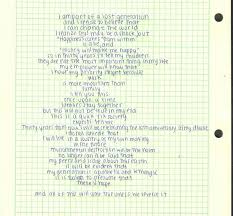 I am part of a lost generation
and I refuse to believe that
I can change the world
I realize this may be a shock but
"Happiness comes from within"
is a lie, and
"Money will make me happy"
So in thirty years I will tell my children
they are not the most important thing in my life
My employer will know that
I have my priorities straight because
work
is more important than
family
I tell you this
Once upon a time
Families stayed together
but this will not be true in my era
This is a quick fix society
Experts tell me
Thirty years from now I will be celebrating the 10th anniversary of my divorce
I do not concede that
I will live in a country of my own making
In the future
Environmental destruction will be the norm
No longer can it be said that
My peers and I care about this earth
It will be evident that
My generation is apathetic and lethargic
It is foolish to presume that
There is hope
And all of this will come true unless we reverse it